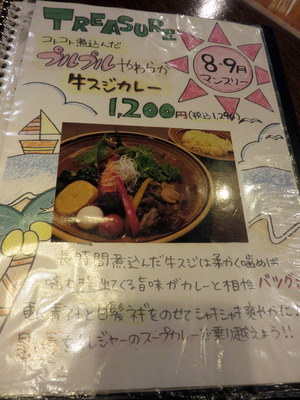 TREASURE
コトコト煮込んだ
プルプルやわらか
牛スジカレー
8・9月
マンスリー
1,200円(税込1,296)
長時間煮込んだ牛スジは柔かく噛めば
出てくる旨味がカレーと相性バツグン
白髪ネギをのせてシャキシャキ爽やかに
ジャーのスープカレーで乗り越えよう!!